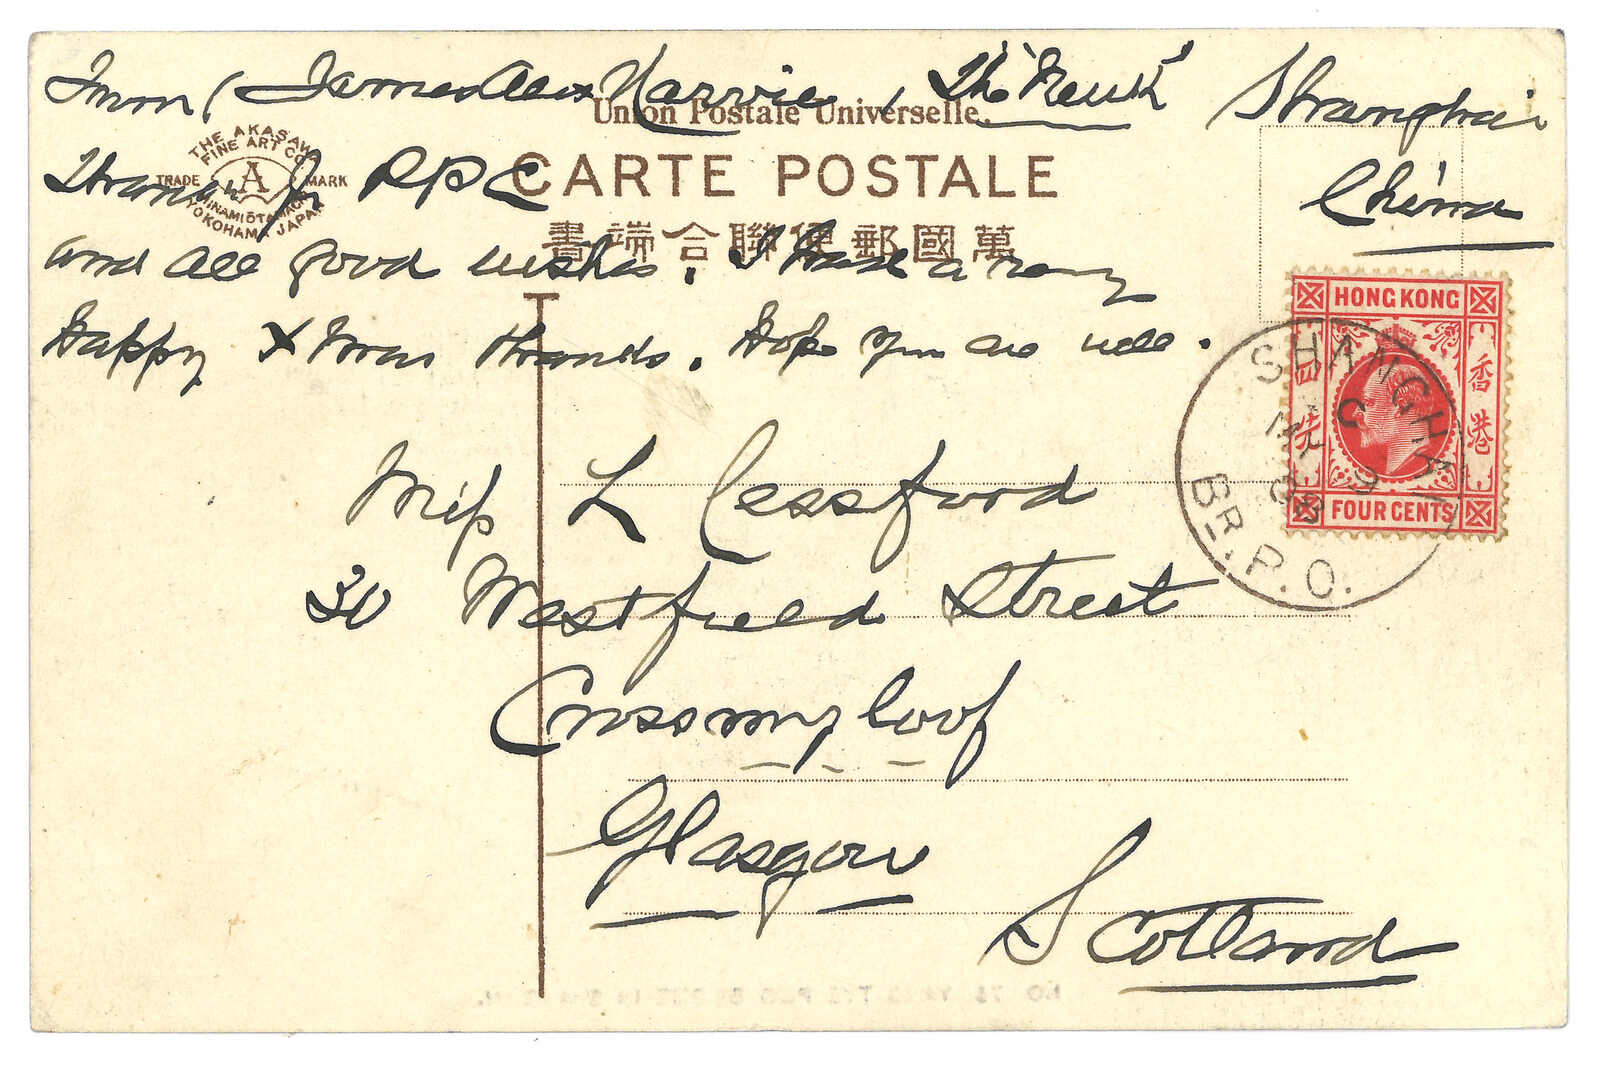 From, James Alex Harvie, "The Neuk" Shanghai
China
Union Postale Universelle.
CARTE POSTALE
萬國郵便聯合端書
THE AKASAWA
FINE ART CO
TRADE A MARK
MINAMIŌTAMACHI
YOKOHAMA JAPAN
Thanks for P.P.C
and all good wishes. I had a very
Happy Xmas thanks. Hope you are well.
Miss L Cessford
30 Westfield Street
Crossmyloof
Glasgow
Scotland
HONG KONG
香港
FOUR CENTS
SHANGHAI
C
9
08
BR. P.O.